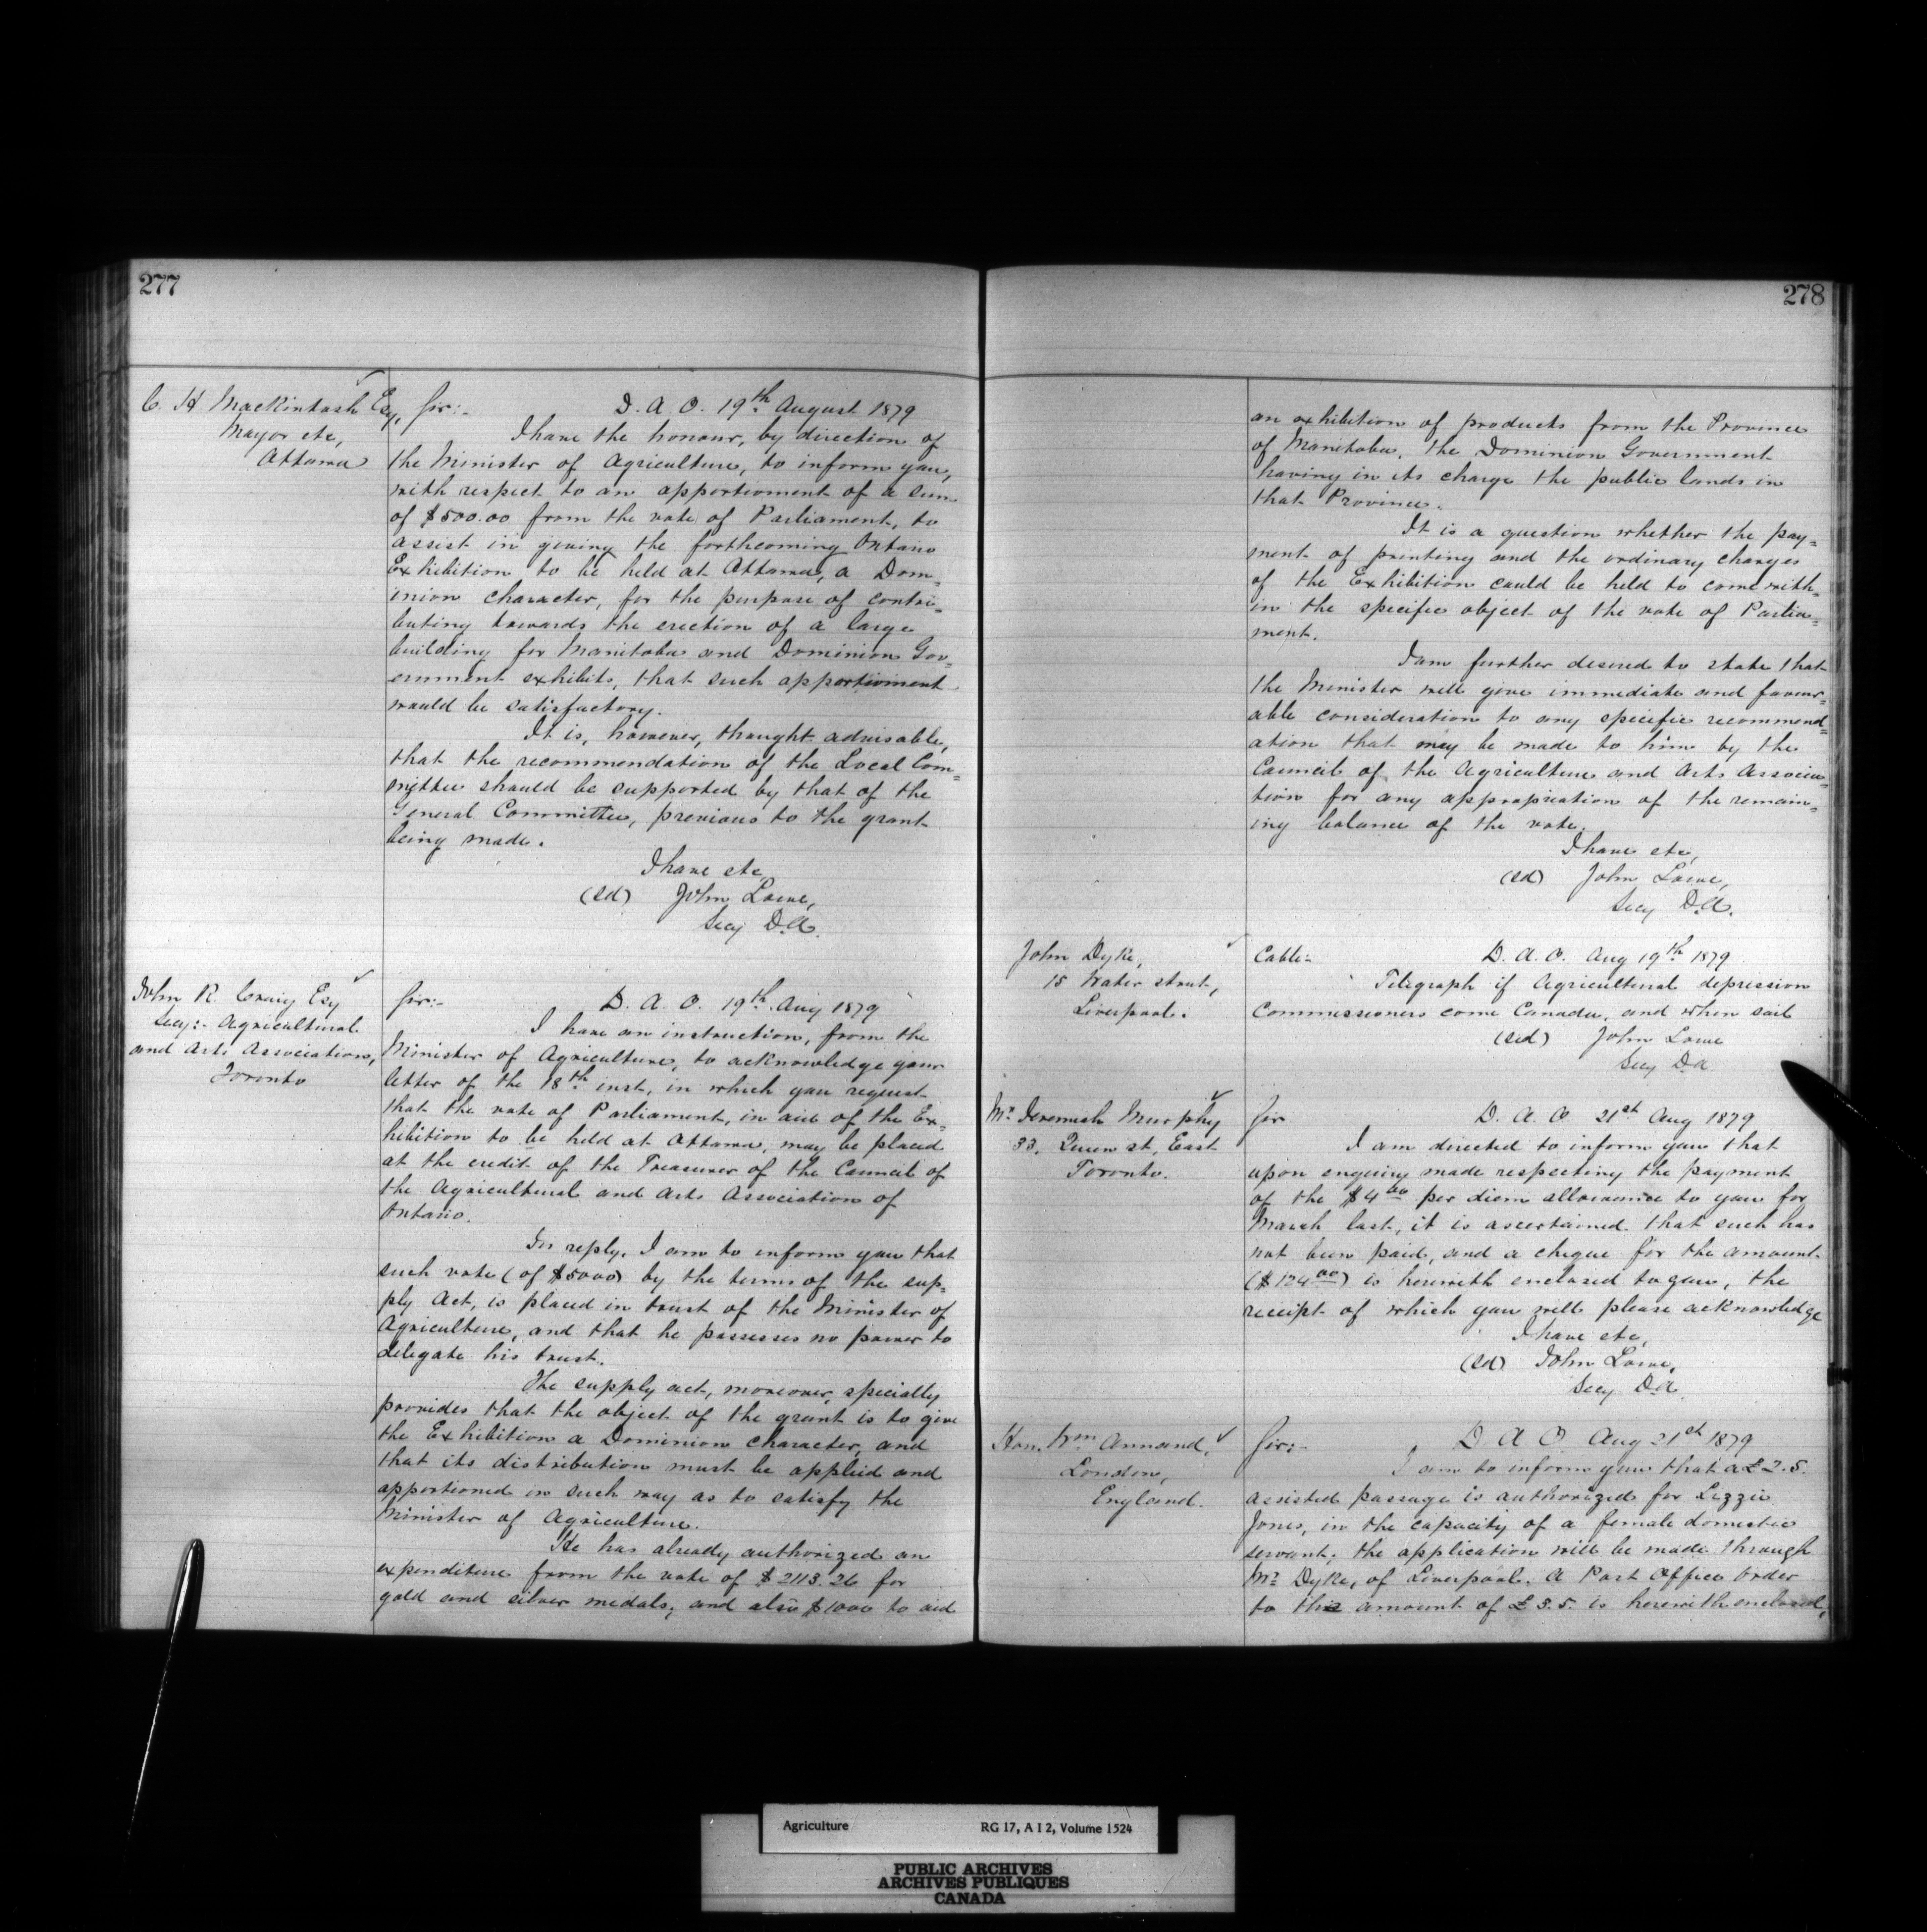 277
C. H Mackintosh Esq,
Mayor etc,
Ottawa
Sir:-
D. A. O. 19th August 1879
I have the honour, by direction of
the Minister of Agriculture, to inform you,
with respect to an apportionment of a sum
of $500.00 from the vote of Parliament, to
assist in giving the forthcoming Ontario
Exhibition to be held at Ottawa, a Dom=
inion character, for the purpose of contri=
buting towards the erection of a large
building for Manitoba and Dominion Gov=
ernment exhibits, that such apportionment
would be satisfactory.
It is, however, thought advisable,
that the recommendation of the Local Com=
mittee should be supported by that of the
General Committee, previous to the grant
being made.
I have etc
(sd) John Lowe,
Secy D.A.
John R. Craig Esq
Secy:- Agricultural
and Arts Association,
Toronto
Sir:-
D. A. O. 19th Aug 1879
I have an instruction, from the
Minister of Agriculture, to acknowledge your
letter of the 18th inst, in which you request
that the vote of Parliament, in aid of the Ex=
hibition to be held at Ottawa, may be placed
at the credit of the Treasurer of the Council of
the Agricultural and Arts Association of
Ontario.
In reply, I am to inform you that
such vote (of $5000) by the terms of the sup=
ply Act, is placed in trust of the Minister of
Agriculture, and that he possesses no power to
delegate his trust.
The supply act, moreover, specially
provides that the object of the grant is to give
the Exhibition a Dominion character, and
that its distribution must be applied and
apportioned in such way as to satisfy the
Minister of Agriculture.
He has already authorized an
expenditure from the vote of $2113.26 for
gold and silver medals; and also $1000 to aid
278
an exhibition of products from the Province
of Manitoba, the Dominion Government
having in its charge the public lands in
that Province.
It is a question whether the pay=
ment of printing and the ordinary charges
of the Exhibition could be held to come with=
in the specific object of the vote of Parlia=
ment.
I am further desired to state that
the Minister will give immediate and favour=
able consideration to any specific recommend=
ation that may be made to him by the
Council of the Agriculture and Arts Associa=
tion for any appropriation of the remain=
ing balance of the vote.
I have etc,
(sd) John Lowe,
Secy D.A.
John Dyke,
15 Water street,
Liverpool.
Cable:-
D. A. O. Aug 19th 1879
Telegraph if Agricultural depression
Commissioners come Canada, and when sail
(sd) John Lowe
Secy D.A
Mr Jeremiah Murphy
33, Queen st, East
Toronto.
Sir
D. A. O. 21st Aug 1879
I am directed to inform you that
upon enquiry made respecting the payment
of the $4.00 per diem allowance to you for
March last, it is ascertained that such has
not been paid, and a cheque for the amount
($124.00) is herewith enclosed to you, the
receipt of which you will please acknowledge
I have etc,
(sd) John Lowe,
Secy D.A.
Hon. Wm Annand,
London,
England.
Sir:-
D. A. O. Aug 21st 1879
I am to inform you that a £2.5.
assisted passage is authorized for Lizzie
Jones, in the capacity of a female domestic
servant; the application will be made through
Mr Dyke, of Liverpool. A Post Office Order
to the amount of £5.5. is herewith enclosed,
Agriculture RG 17, A I 2, Volume 1524
PUBLIC ARCHIVES
ARCHIVES PUBLIQUES
CANADA